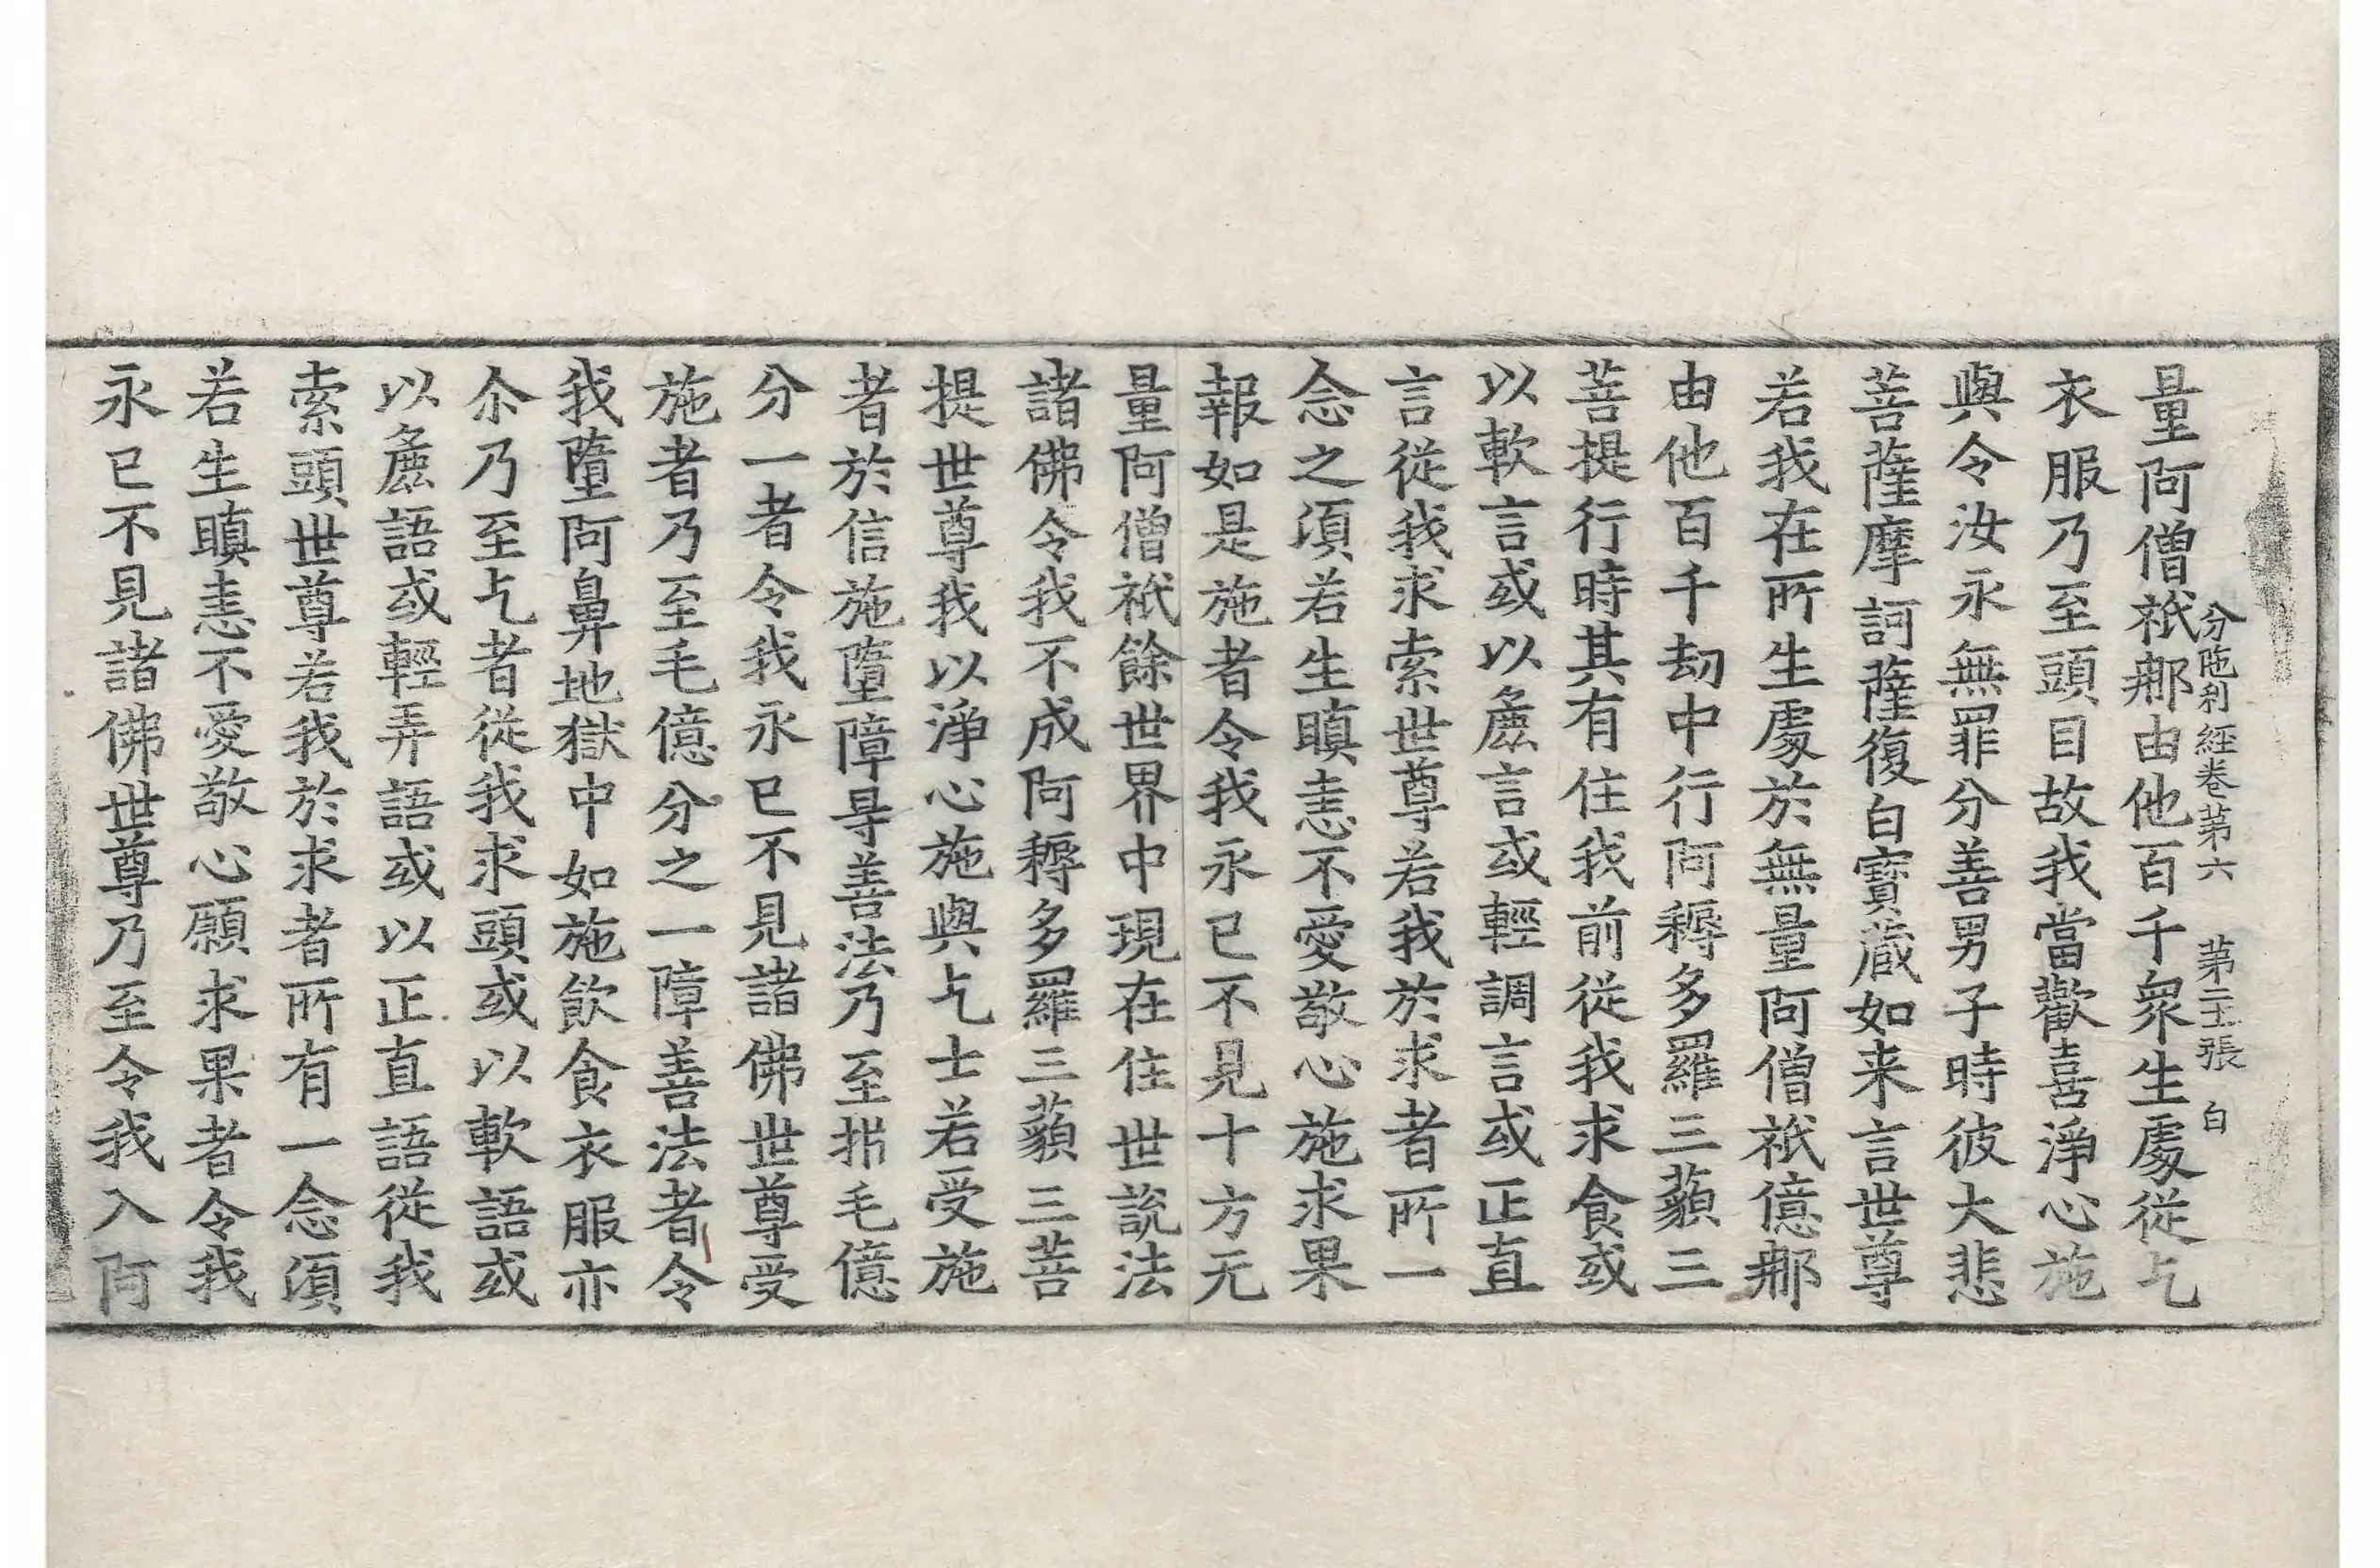 分陁利經卷第六 第二十張 白
量阿僧祇那由他百千衆生處從乞
衣服乃至頭目故我當歡喜淨心施
與令汝永無罪分善男子時彼大悲
菩薩摩訶薩復白寶藏如来言世尊
若我在所生處於無量阿僧祇億那
由他百千劫中行阿耨多羅三藐三
菩提行時其有住我前從我求食或
以軟言或以麁言或輕調言或正直
言從我求索世尊若我於求者所一
念之湏若生瞋恚不愛敬心施求果
報如是施者令我永已不見十方无
量阿僧祇餘世界中現在住世說法
諸佛令我不成阿耨多羅三藐三菩
提世尊我以淨心施與乞士若受施
者於信施墮障㝵善法乃至㭊毛億
分一者令我永已不見諸佛世尊受
施者乃至毛億分之一障善法者令
我墮阿鼻地獄中如施飲食衣服亦
尒乃至乞者從我求頭或以軟語或
以麁語或輕弄語或以正直語從我
索頭世尊若我於求者所有一念湏
若生瞋恚不愛敬心願求果者令我
永已不見諸佛世尊乃至令我入阿